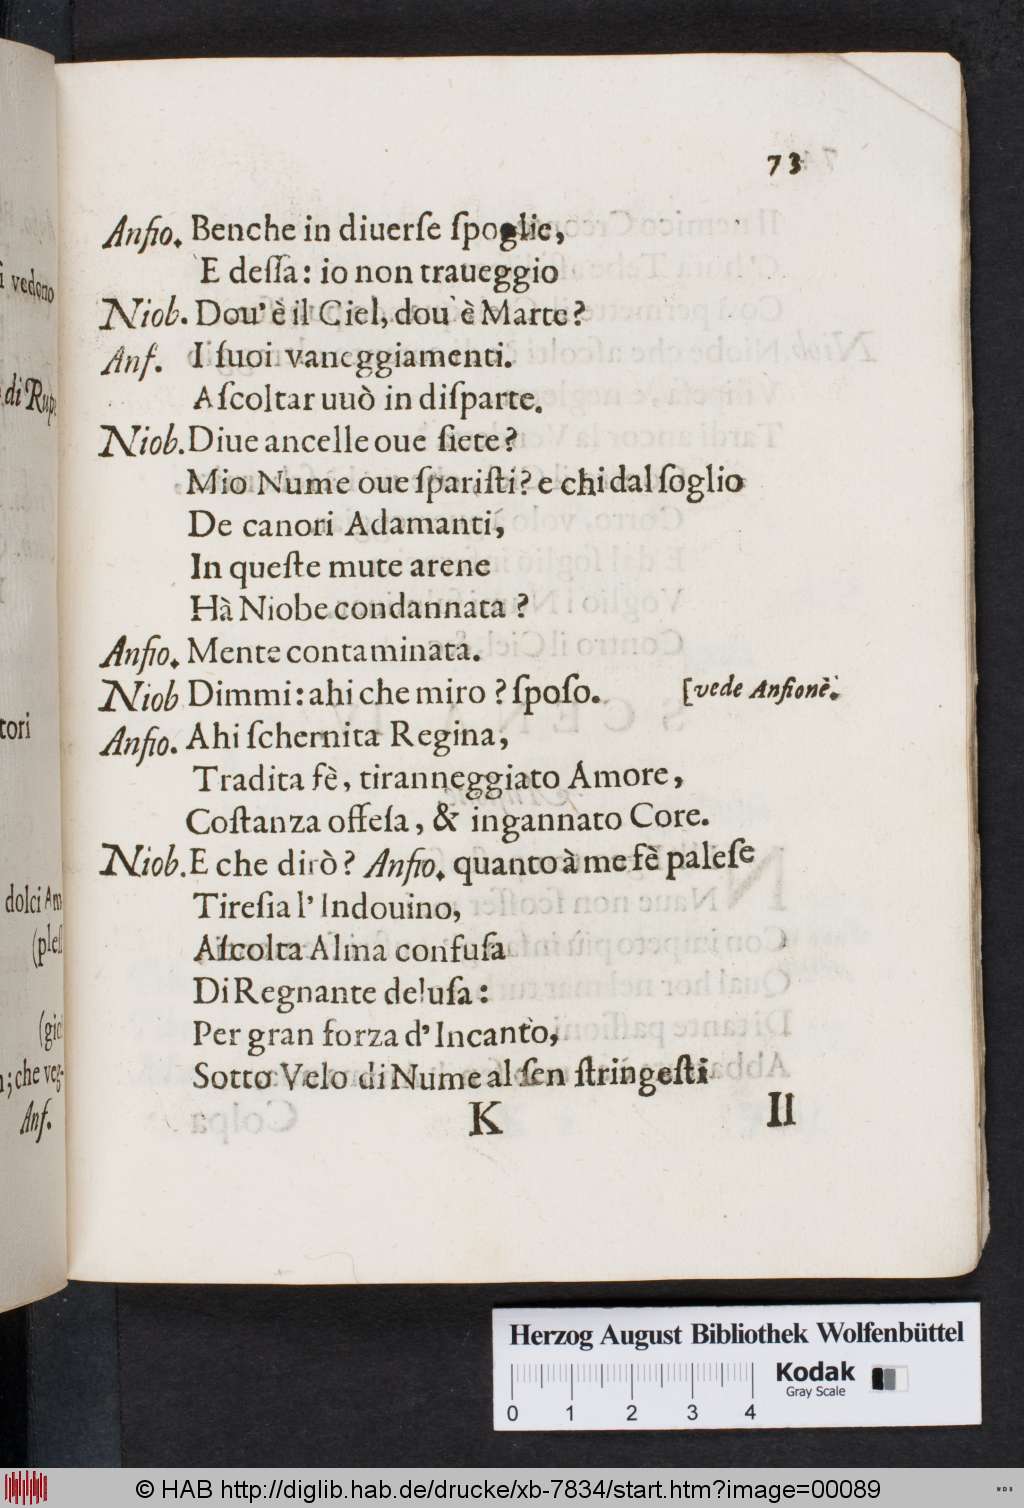 73
Anfio. Benche in diuerſe ſpoglie,
E deſſa: io non traueggio
Niob. Dou' è il Ciel, dou è Marte?
Anf. I ſuoi vaneggiamenti.
Aſcoltar uuò in diſparte.
Niob. Diue ancelle oue ſiete?
Mio Nume oue ſpariſti? e chi dal ſoglio
De canori Adamanti,
In queſte mute arene
Hà Niobe condannata ?
Anfio. Mente contaminata.
Niob Dimmi: ahi che miro ? ſpoſo. [vede Anfionè.
Anfio. Ahi ſchernita Regina,
Tradita fè, tiranneggiato Amore,
Coſtanza offeſa, & ingannato Core.
Niob. E che dirò? Anfio. quanto à me fè paleſe
Tireſia l' Indouino,
Aſcolta Alma confuſa
Di Regnante deluſa:
Per gran forza d' Incanto,
Sotto Velo di Nume al ſen ſtringeſti
K Il
i vedono
di Rup
tori
dolci Am
(pleſ
(gic
; che veg-
Anf.
Herzog August Bibliothek Wolfenbüttel
Kodak
Gray Scale
0 1 2 3 4
© HAB http://diglib.hab.de/drucke/xb-7834/start.htm?image=00089